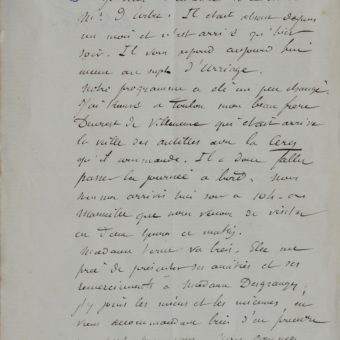 Mr D. Arbre : Il était absent depuis
un mois et n'est arrivé qu'hier
soir. Il vous répond aujourd'hui
même au sujet d'Arriage.
Notre programme a été un peu changé.
J'ai trouvé à Toulon mon beau frère
de Villeneuve qui était arrivé
la veille des avec la Cérès
qu'il commande. Il a donc fallu
passer la journée à bord. Nous
sommes arrivés hier soir à 10h. à
Marseille que nous venons de visiter
en deux heures ce matin.
Madame Verne va bien. Elle me
prie de présenter ses amitiés et ses
remerciements à Madame Desgranges;
j'y joins les miens et les miennes en
vous recommandant bien d'en prendre